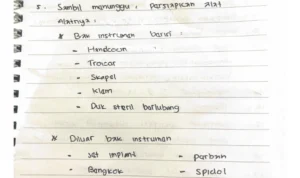 5. Sambil menunggu, persiapkan alat
alatnya.
* Bak instrumen berisi
- Handscoon
- Trocar
- Skapel
- Klem
- Duk steril berlubang
* Diluar bak instrumen
- set implant - perban
- Bengkok - spidol